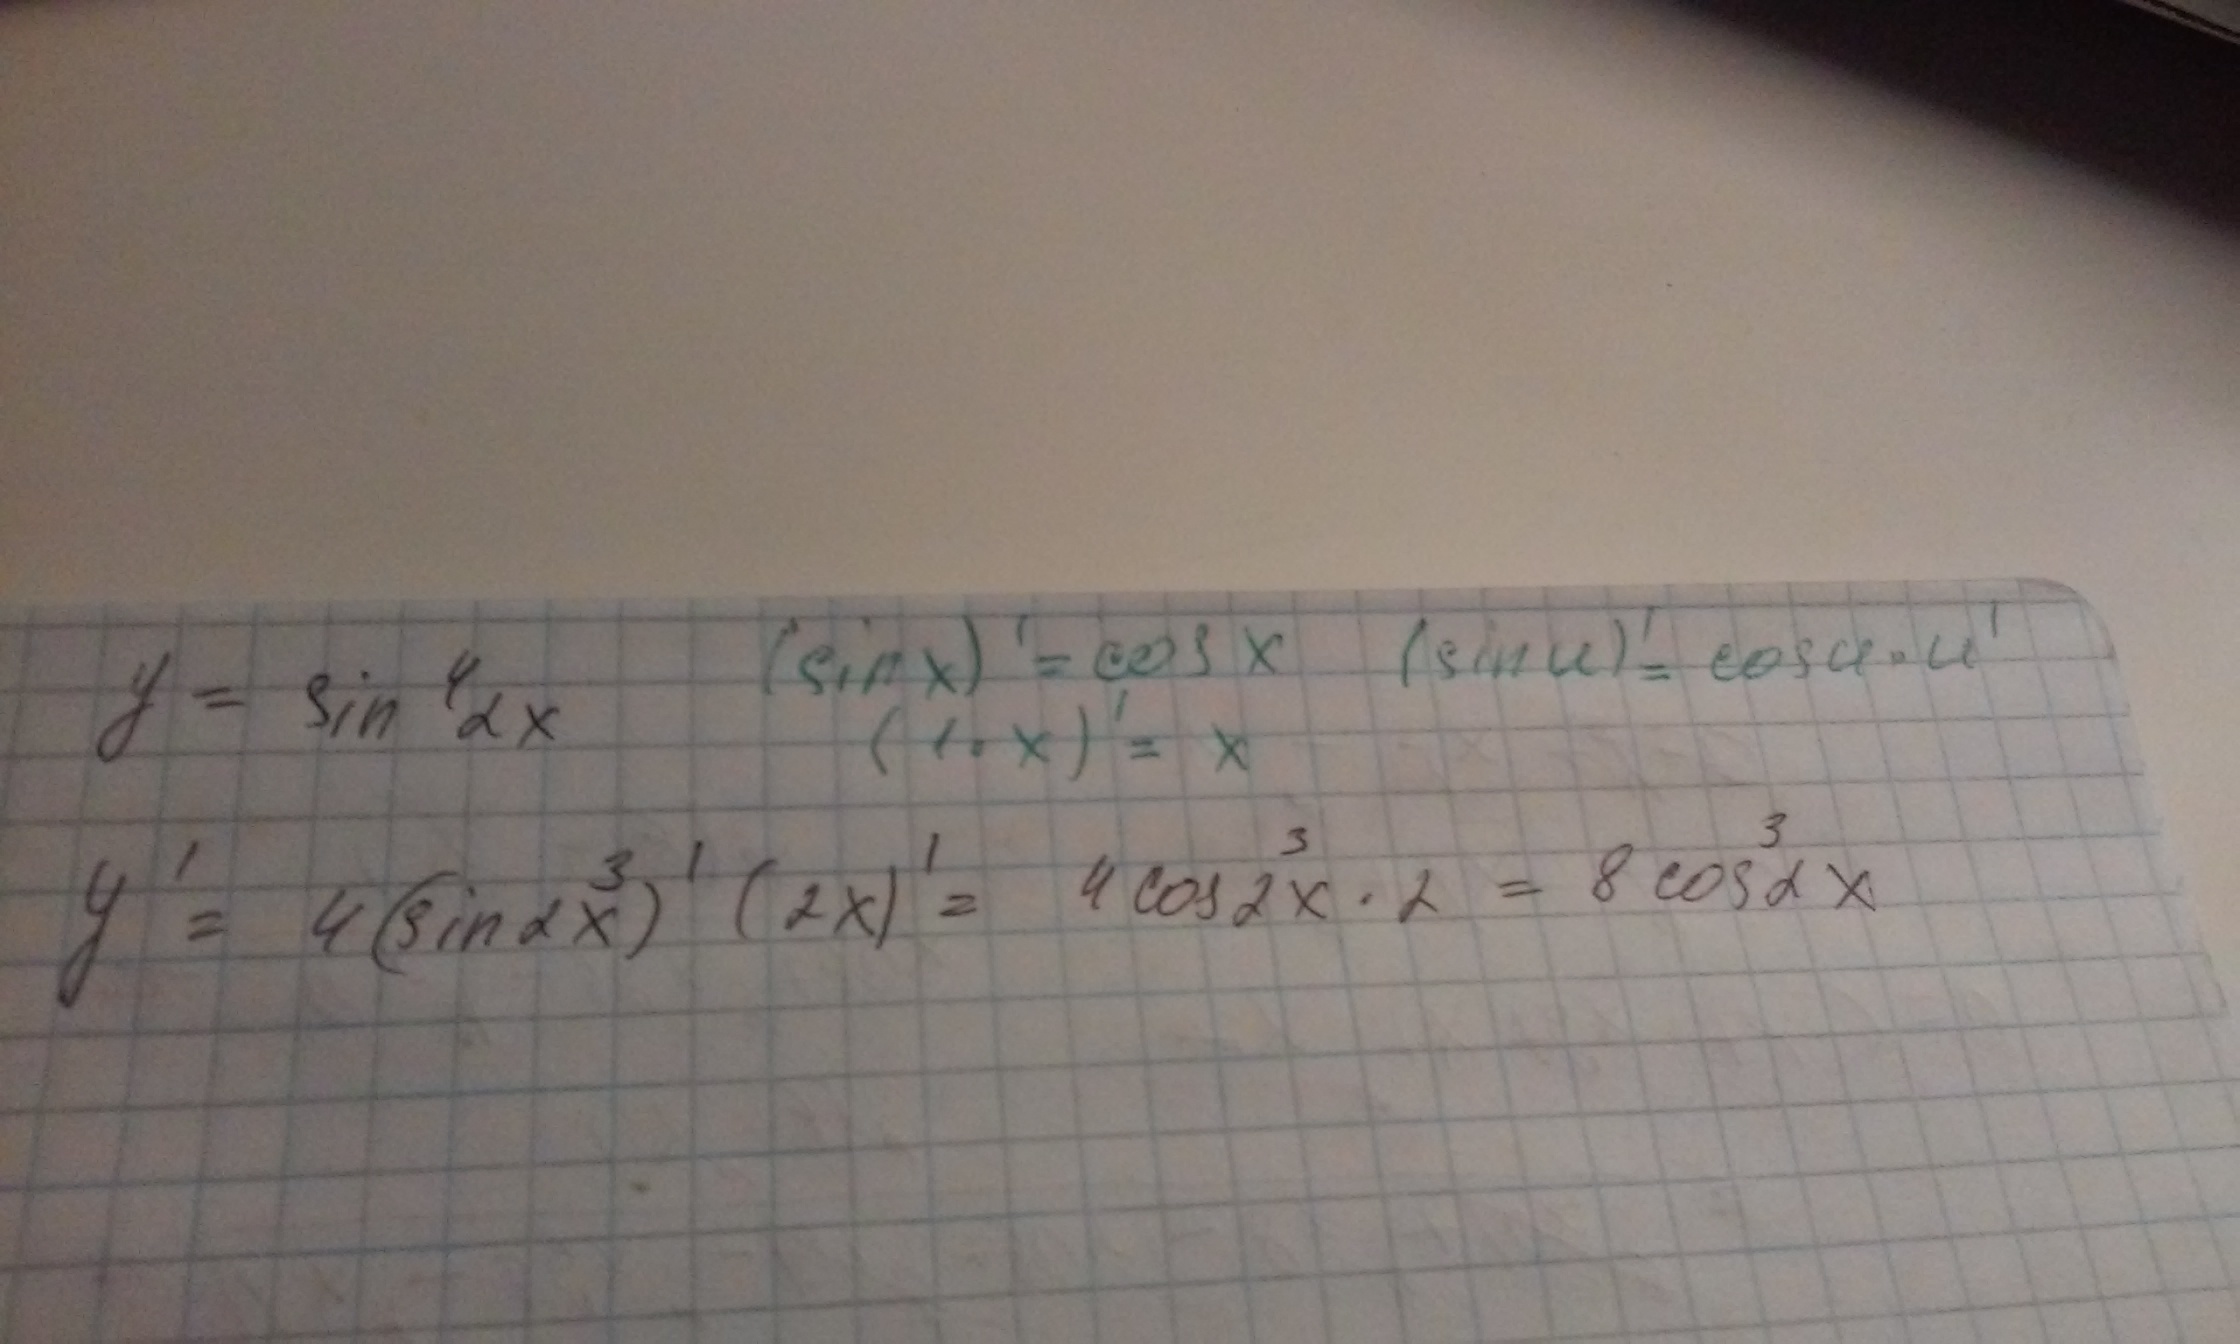 y = sin⁴2x (sin x)' = cos x (sin u)' = cos u · u'
(1·x)' = x
y' = 4(sin2x³)' (2x)' = 4cos2x³ · 2 = 8cos³2x